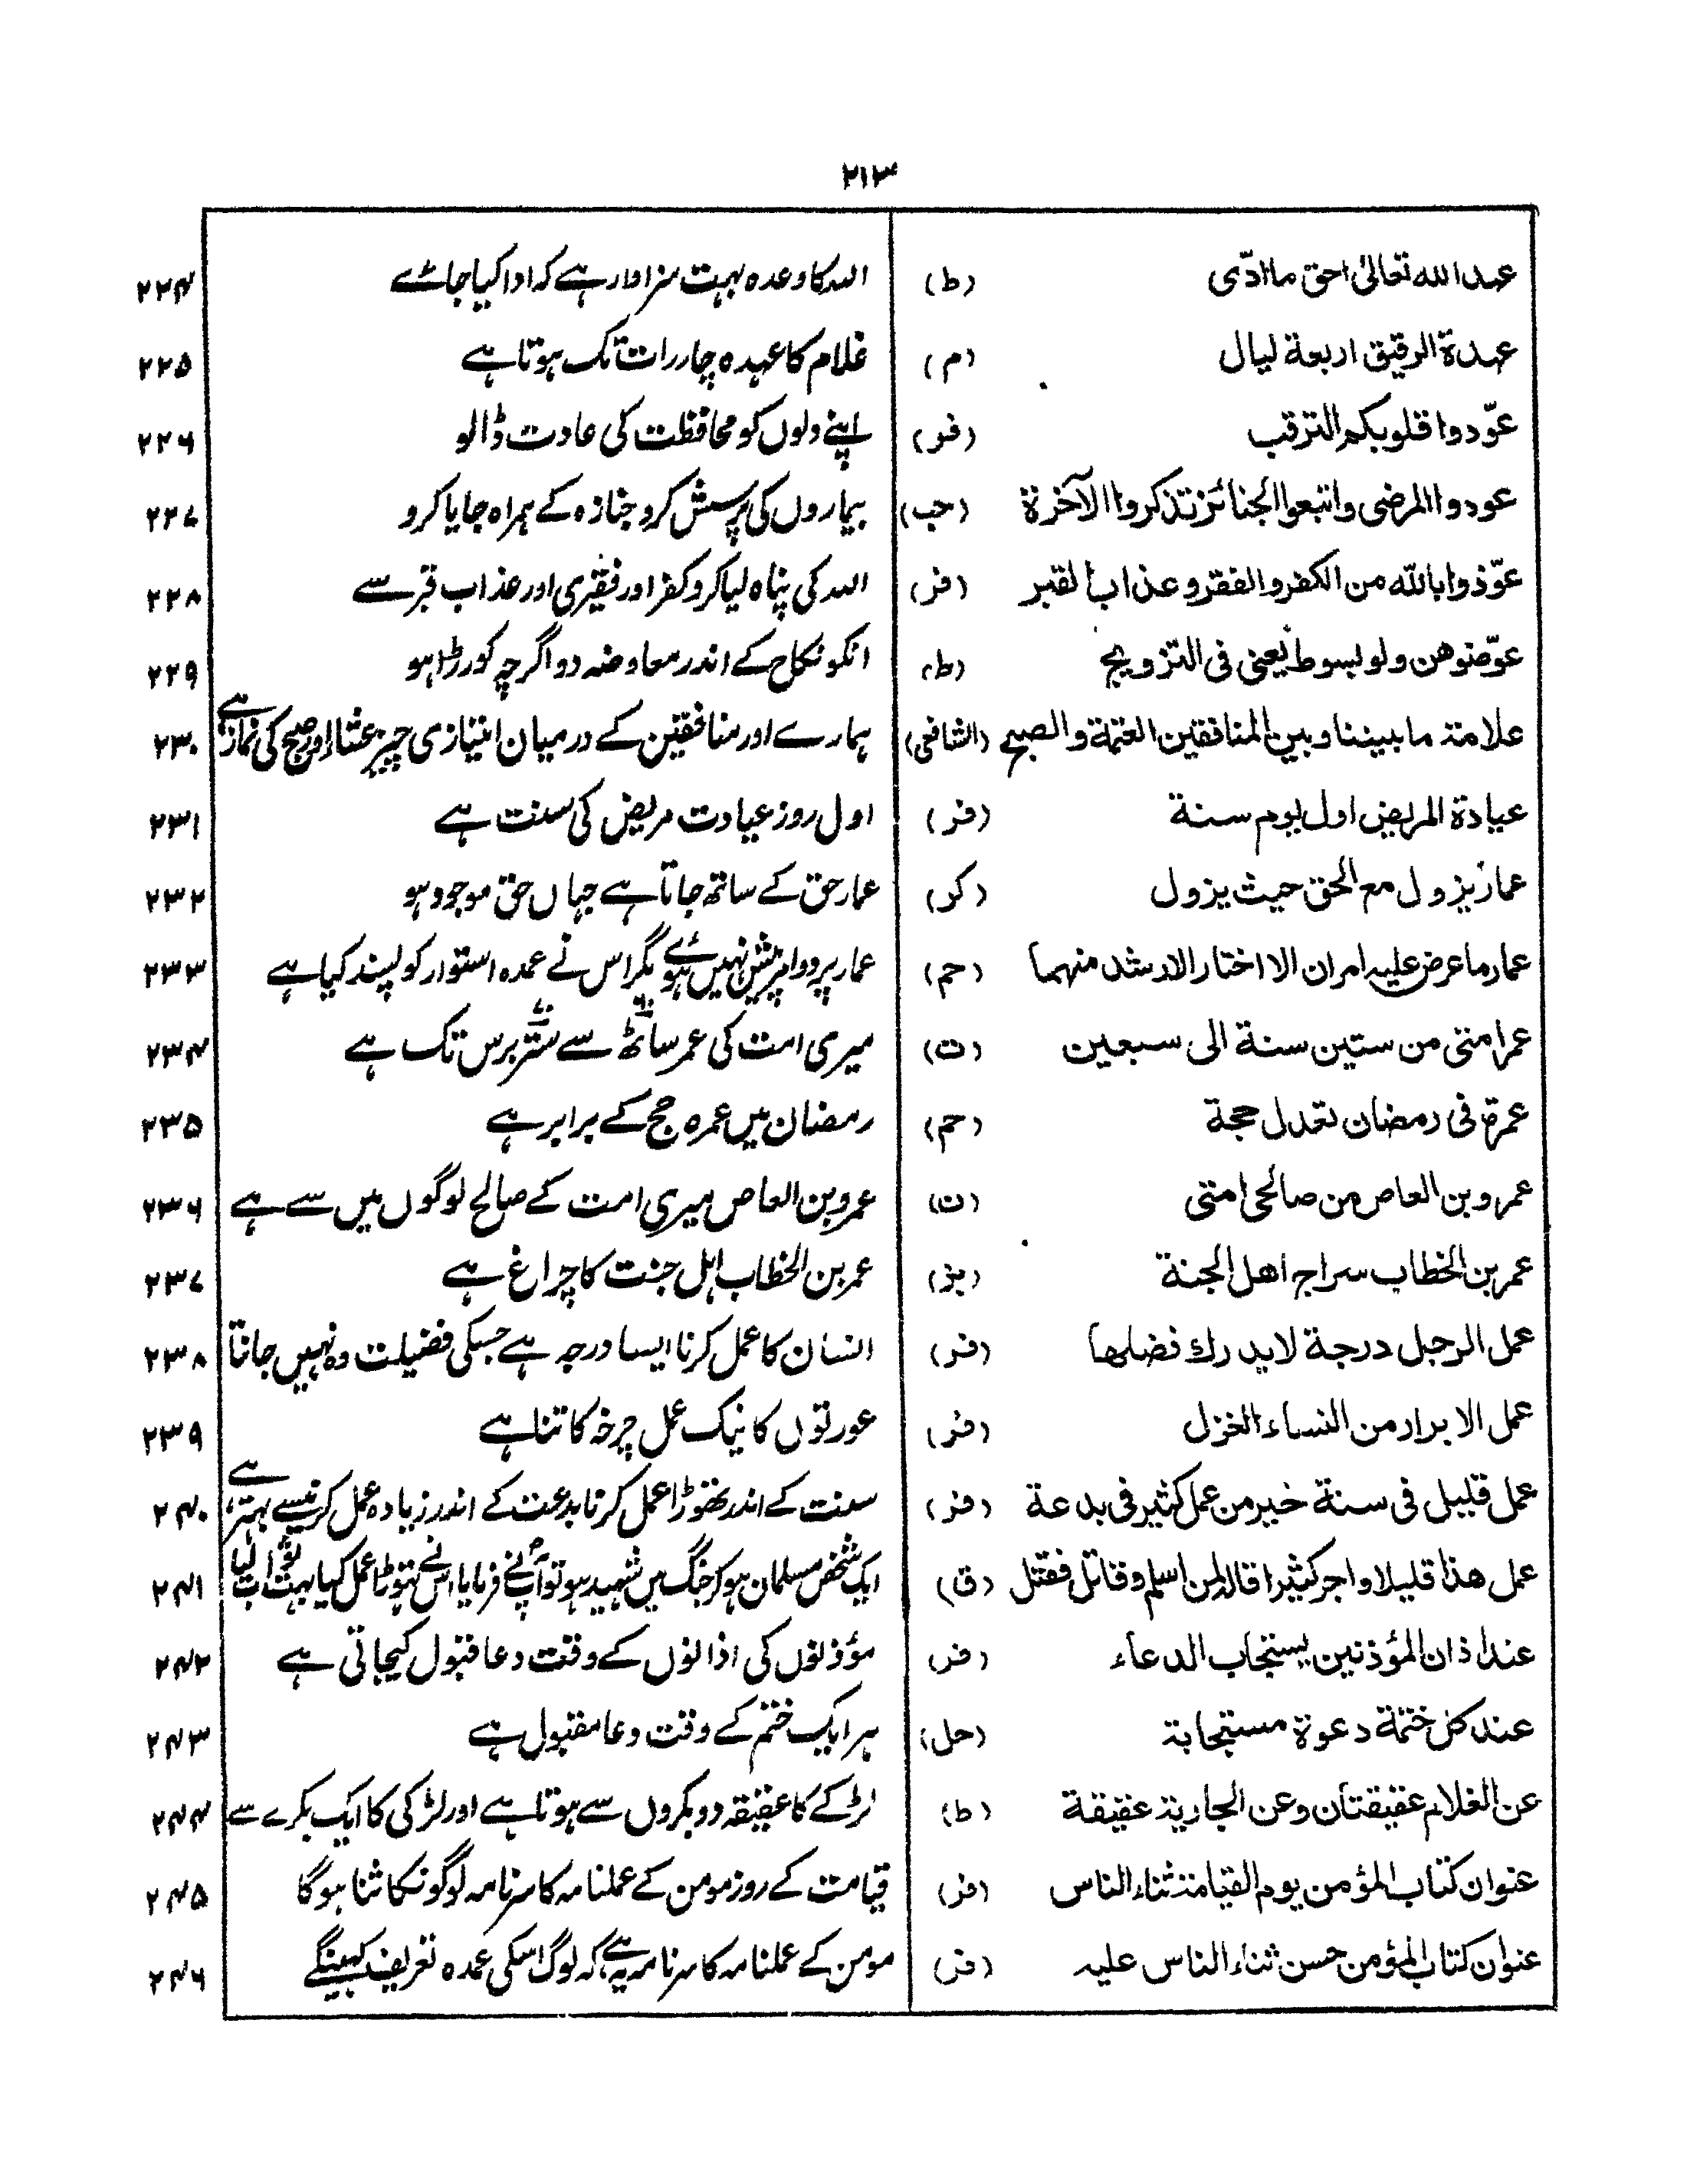 ۲۱۳
عهد الله تعالیٰ احق ما ادّی (ط) اللہ کا وعدہ بہت سزاوار ہے کہ ادا کیا جائے ۲۲۴
عهدة الرقیق اربعة لیال (م) غلام کا عہدہ چار رات تک ہوتا ہے ۲۲۵
عوّدوا قلوبکم الترقب (فر) اپنے دلوں کو محافظت کی عادت ڈالو ۲۲۶
عودوا المرضی واتبعوا الجنائز تذکروا الآخرة (حب) بیماروں کی پرسش کرو جنازہ کے ہمراہ جایا کرو ۲۲۷
عوّذوا بالله من الکفر والفقر وعذاب القبر (فر) اللہ کی پناہ لیا کرو کفر اور فقیری اور عذاب قبر سے ۲۲۸
عوّضوهن ولو بسوط یعنی فی التزویج (ط) انکو نکاح کے اندر معاوضہ دو اگرچہ کوڑا ہو ۲۲۹
علامة ما بیننا وبین المنافقین العتمة والصبح (الشافعی) ہمارے اور منافقین کے درمیان امتیازی چیز عشاء اور صبح کی نماز ہے ۲۳۰
عیادة المریض اول یوم سنة (فر) اول روز عیادت مریض کی سنت ہے ۲۳۱
عمار یزول مع الحق حیث یزول (کر) عمار حق کے ساتھ جاتا ہے جہاں حق موجود ہو ۲۳۲
عمار ما عرض علیه امران الا اختار الارشد منهما (حم) عمار پر دو امر پیش نہیں ہوئے مگر اس نے عمدہ استوار کو پسند کیا ہے ۲۳۳
عمر امتی من ستین سنة الی سبعین (ت) میری امت کی عمر ساٹھ سے ستر برس تک ہے ۲۳۴
عمرة فی رمضان تعدل حجة (حم) رمضان میں عمرہ حج کے برابر ہے ۲۳۵
عمرو بن العاص من صالحی امتی (ن) عمرو بن العاص میری امت کے صالح لوگوں میں سے ہے ۲۳۶
عمر بن الخطاب سراج اهل الجنة (بز) عمر بن الخطاب اہل جنت کا چراغ ہے ۲۳۷
عمل الرجل درجة لا یدرك فضلها (فر) انسان کا عمل کرنا ایسا درجہ ہے جسکی فضیلت وہ نہیں جانتا ۲۳۸
عمل الابرار من النساء الغزل (فر) عورتوں کا نیک عمل چرخہ کاتنا ہے ۲۳۹
عمل قلیل فی سنة خیر من عمل کثیر فی بدعة (فر) سنت کے اندر تھوڑا عمل کرنا بدعت کے اندر زیادہ عمل کرنیسے بہتر ہے ۲۴۰
عمل هذا قلیلا واجر کثیرا قاله لمن اسلم وقاتل فقتل (ق) ایک شخص مسلمان ہو کر جنگ میں شہید ہو تو آپنے فرمایا اس نے تھوڑا عمل کیا بہت ثواب لیا ۲۴۱
عند اذان المؤذنین یستجاب الدعاء (فر) مؤذنوں کی اذانوں کے وقت دعا قبول کیجاتی ہے ۲۴۲
عند کل ختمة دعوة مستجابة (حل) ہر ایک ختم کے وقت دعا مقبول ہے ۲۴۳
عن الغلام عقیقتان وعن الجاریة عقیقة (ط) لڑکے کا عقیقہ دو بکروں سے ہوتا ہے اور لڑکی کا ایک بکرے سے ۲۴۴
عنوان کتاب المؤمن یوم القیامة ثناء الناس (فر) قیامت کے روز مومن کے عملنامہ کا سرنامہ لوگونکا ثنا ہوگا ۲۴۵
عنوان کتاب المؤمن حسن ثناء الناس علیه (فر) مومن کے عملنامہ کا سرنامہ یہ ہے کہ لوگ اسکی عمدہ تعریف کہینگے ۲۴۶